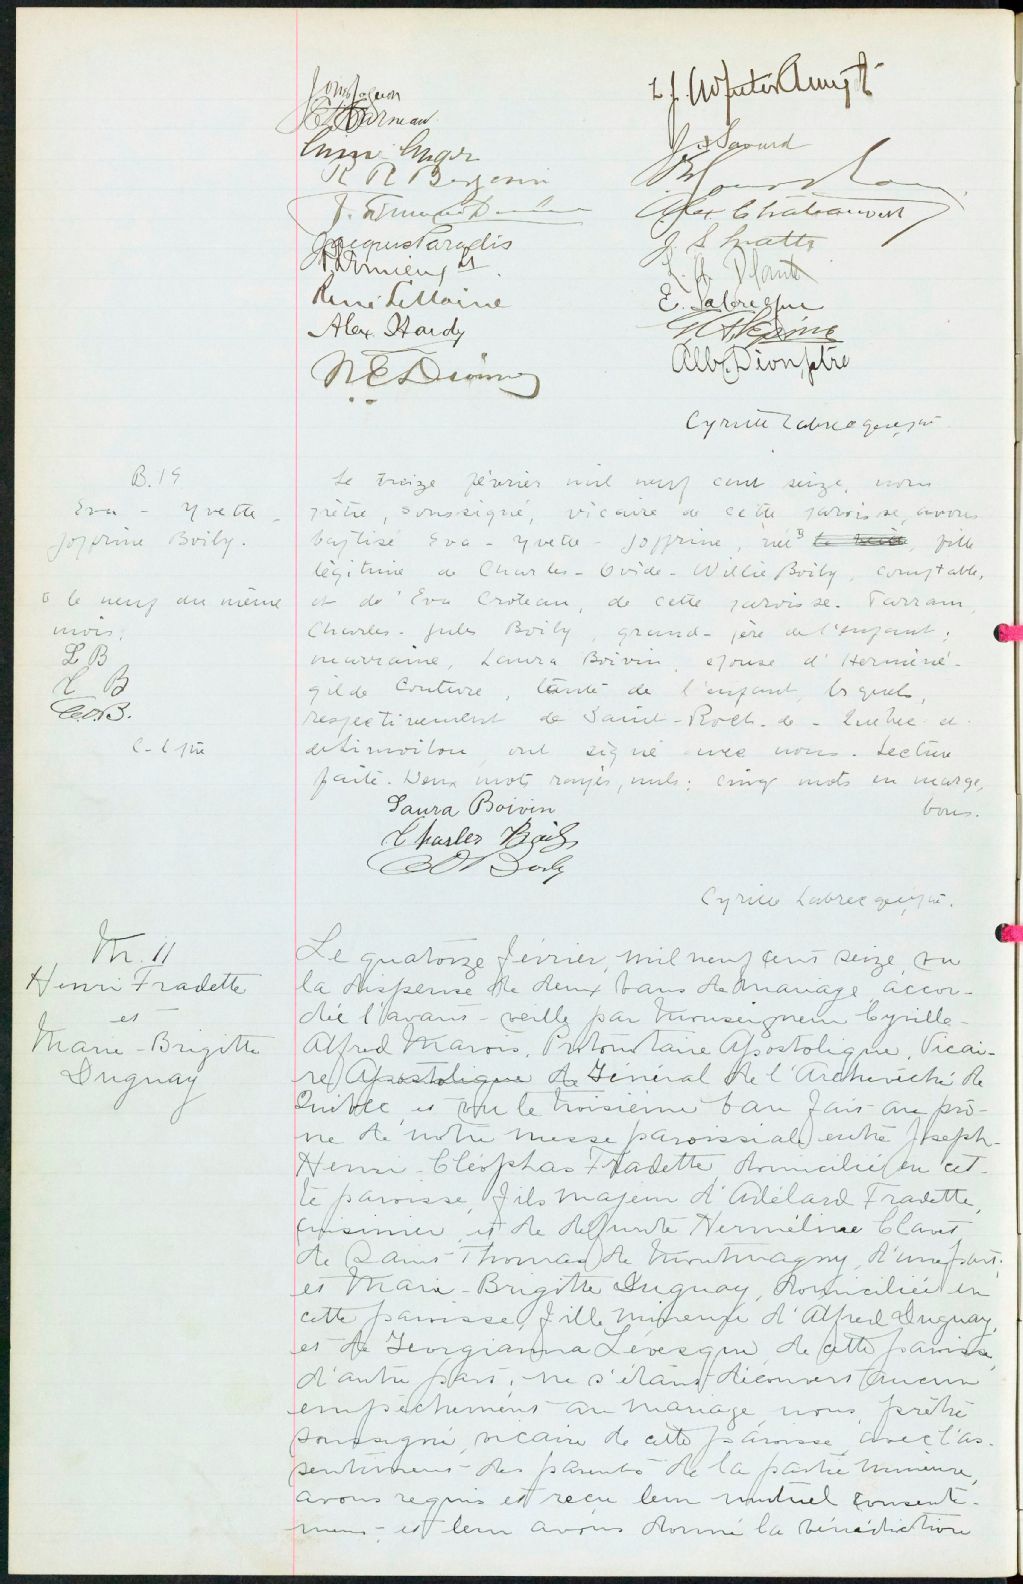 J. A. Savard
Alex Chateauvert
Jacques Paradis
René LeMoine
E. Labrecque
Alex. Hardy
Alb. Dion, ptre
Cyrille Labrecque, ptre
B. 19
Eva - Yvette -
Joffrine Boily.
le neuf du même
mois;
L B
C B
C.O.B.
C. L ptre
Le treize février mil neuf cent seize, nous
prêtre, soussigné, vicaire de cette paroisse, avons
baptisé Eva - Yvette - Joffrine, née, fille
légitime de Charles - Ovide - Willie Boily, comptable,
et de Eva Croteau, de cette paroisse. Parrain,
Charles - Jules Boily, grand-père de l'enfant;
marraine, Laura Boivin, épouse d'Herméné-
gilde Couture, tante de l'enfant, lesquels,
respectivement de Saint-Roch-de-Québec et
de Limoilou, ont signé avec nous. Lecture
faite. Deux mots rayés, nuls; cinq mots en marge,
bons.
Laura Boivin
Charles Boily
C O Boily
Cyrille Labrecque, ptre.
M. 11
Henri Fradette
et
Marie-Brigitte
Duguay
Le quatorze février, mil neuf cent seize, vu
la dispense de deux bans de mariage accor-
dée l'avant-veille par Monseigneur Cyrille-
Alfred Marois, Protonotaire Apostolique, Vicai-
re Apostolique de Général de l'Archevêché de
Québec, et vu le troisième ban fait au prô-
ne de notre messe paroissiale, entre Joseph-
Henri-Cléophas Fradette, domicilié en cet-
te paroisse, fils majeur d'Adélard Fradette,
cuisinier, et de défunte Herméline
de Saint Thomas de Montmagny, d'une part;
et Marie-Brigitte Duguay, domiciliée en
cette paroisse, fille mineure d'Alfred Duguay,
et de Georgianna Lévesque, de cette paroisse,
d'autre part; ne s'étant découvert aucun
empêchement au mariage, nous, prêtre
soussigné, vicaire de cette paroisse, avec l'as-
sentiment des parents de la partie mineure,
avons requis et reçu leur mutuel consente-
ment et leur avons donné la bénédiction